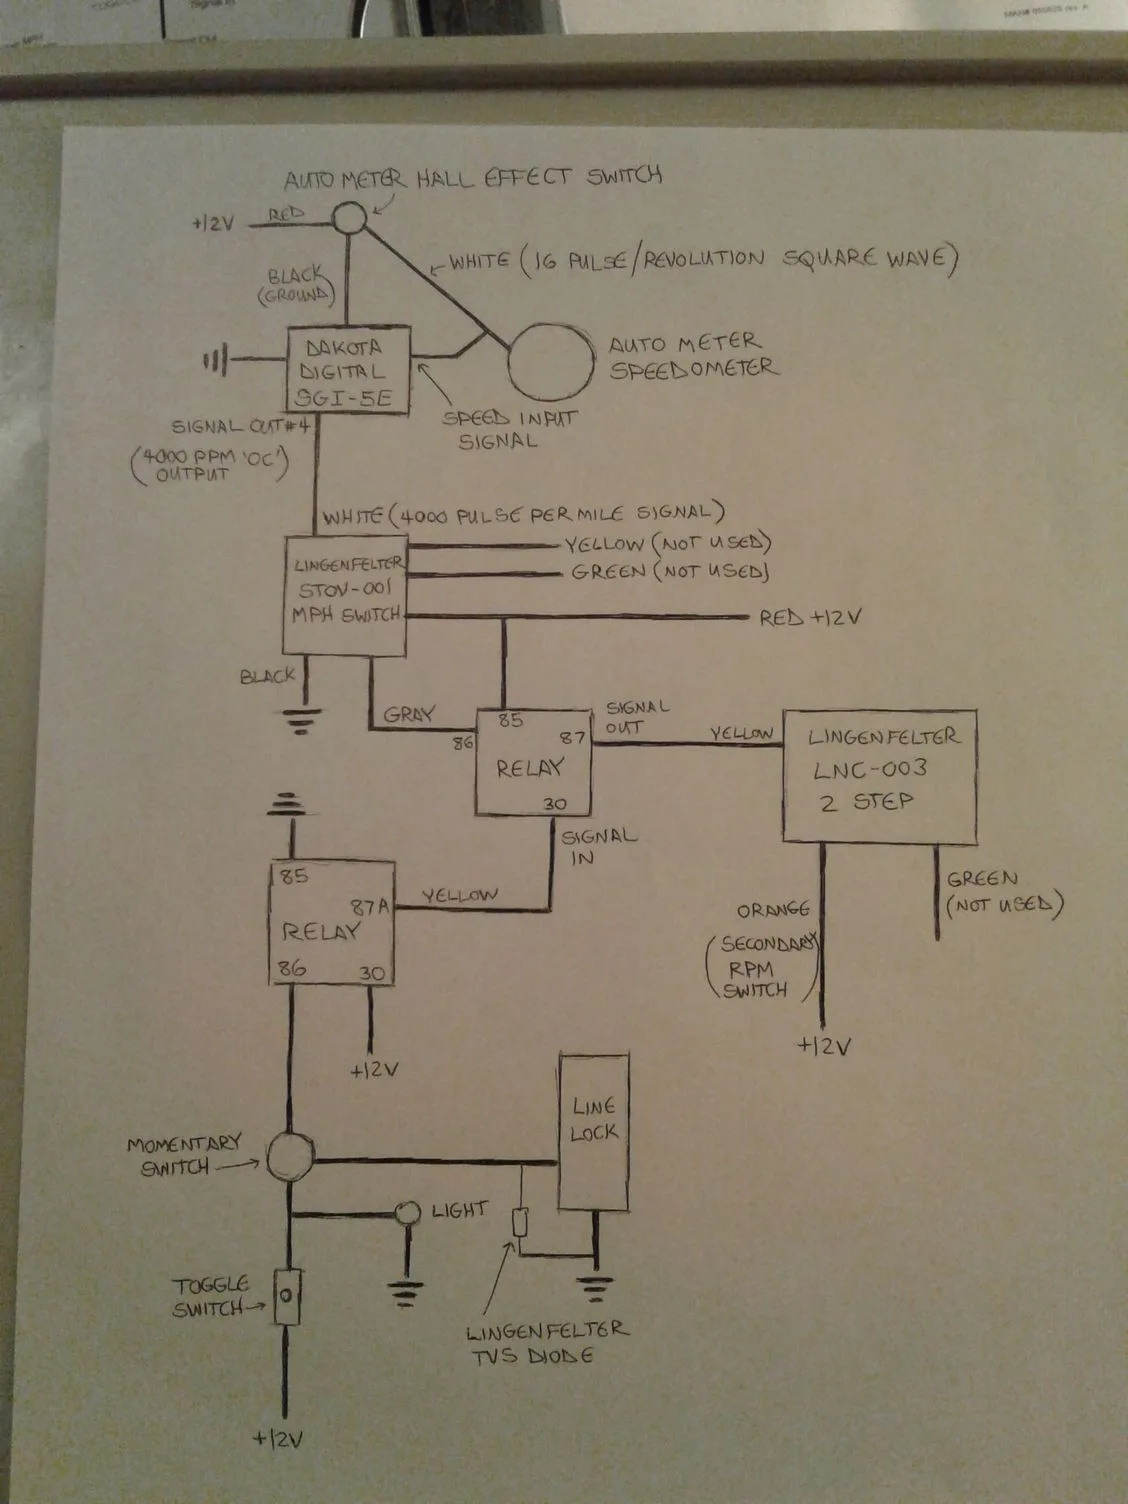 Signal In
AUTO METER HALL EFFECT SWITCH
+12V
RED
WHITE (16 PULSE/REVOLUTION SQUARE WAVE)
BLACK
(GROUND)
DAKOTA
DIGITAL
SGI-5E
AUTO METER
SPEEDOMETER
SPEED INPUT
SIGNAL
SIGNAL OUT #4
(4000 PPM 'OC')
OUTPUT
WHITE (4000 PULSE PER MILE SIGNAL)
LINGENFELTER
STOV-001
MPH SWITCH
YELLOW (NOT USED)
GREEN (NOT USED)
RED +12V
BLACK
GRAY
85
86
87
RELAY
30
SIGNAL
OUT
YELLOW
LINGENFELTER
LNC-003
2 STEP
SIGNAL
IN
85
87A
RELAY
86
30
YELLOW
+12V
ORANGE
(SECONDARY
RPM
SWITCH)
+12V
GREEN
(NOT USED)
LINE
LOCK
MOMENTARY
SWITCH
LIGHT
TOGGLE
SWITCH
LINGENFELTER
TVS DIODE
+12V